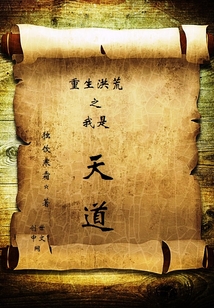 重生洪荒
之
我是
天道
独饮寒霜 著